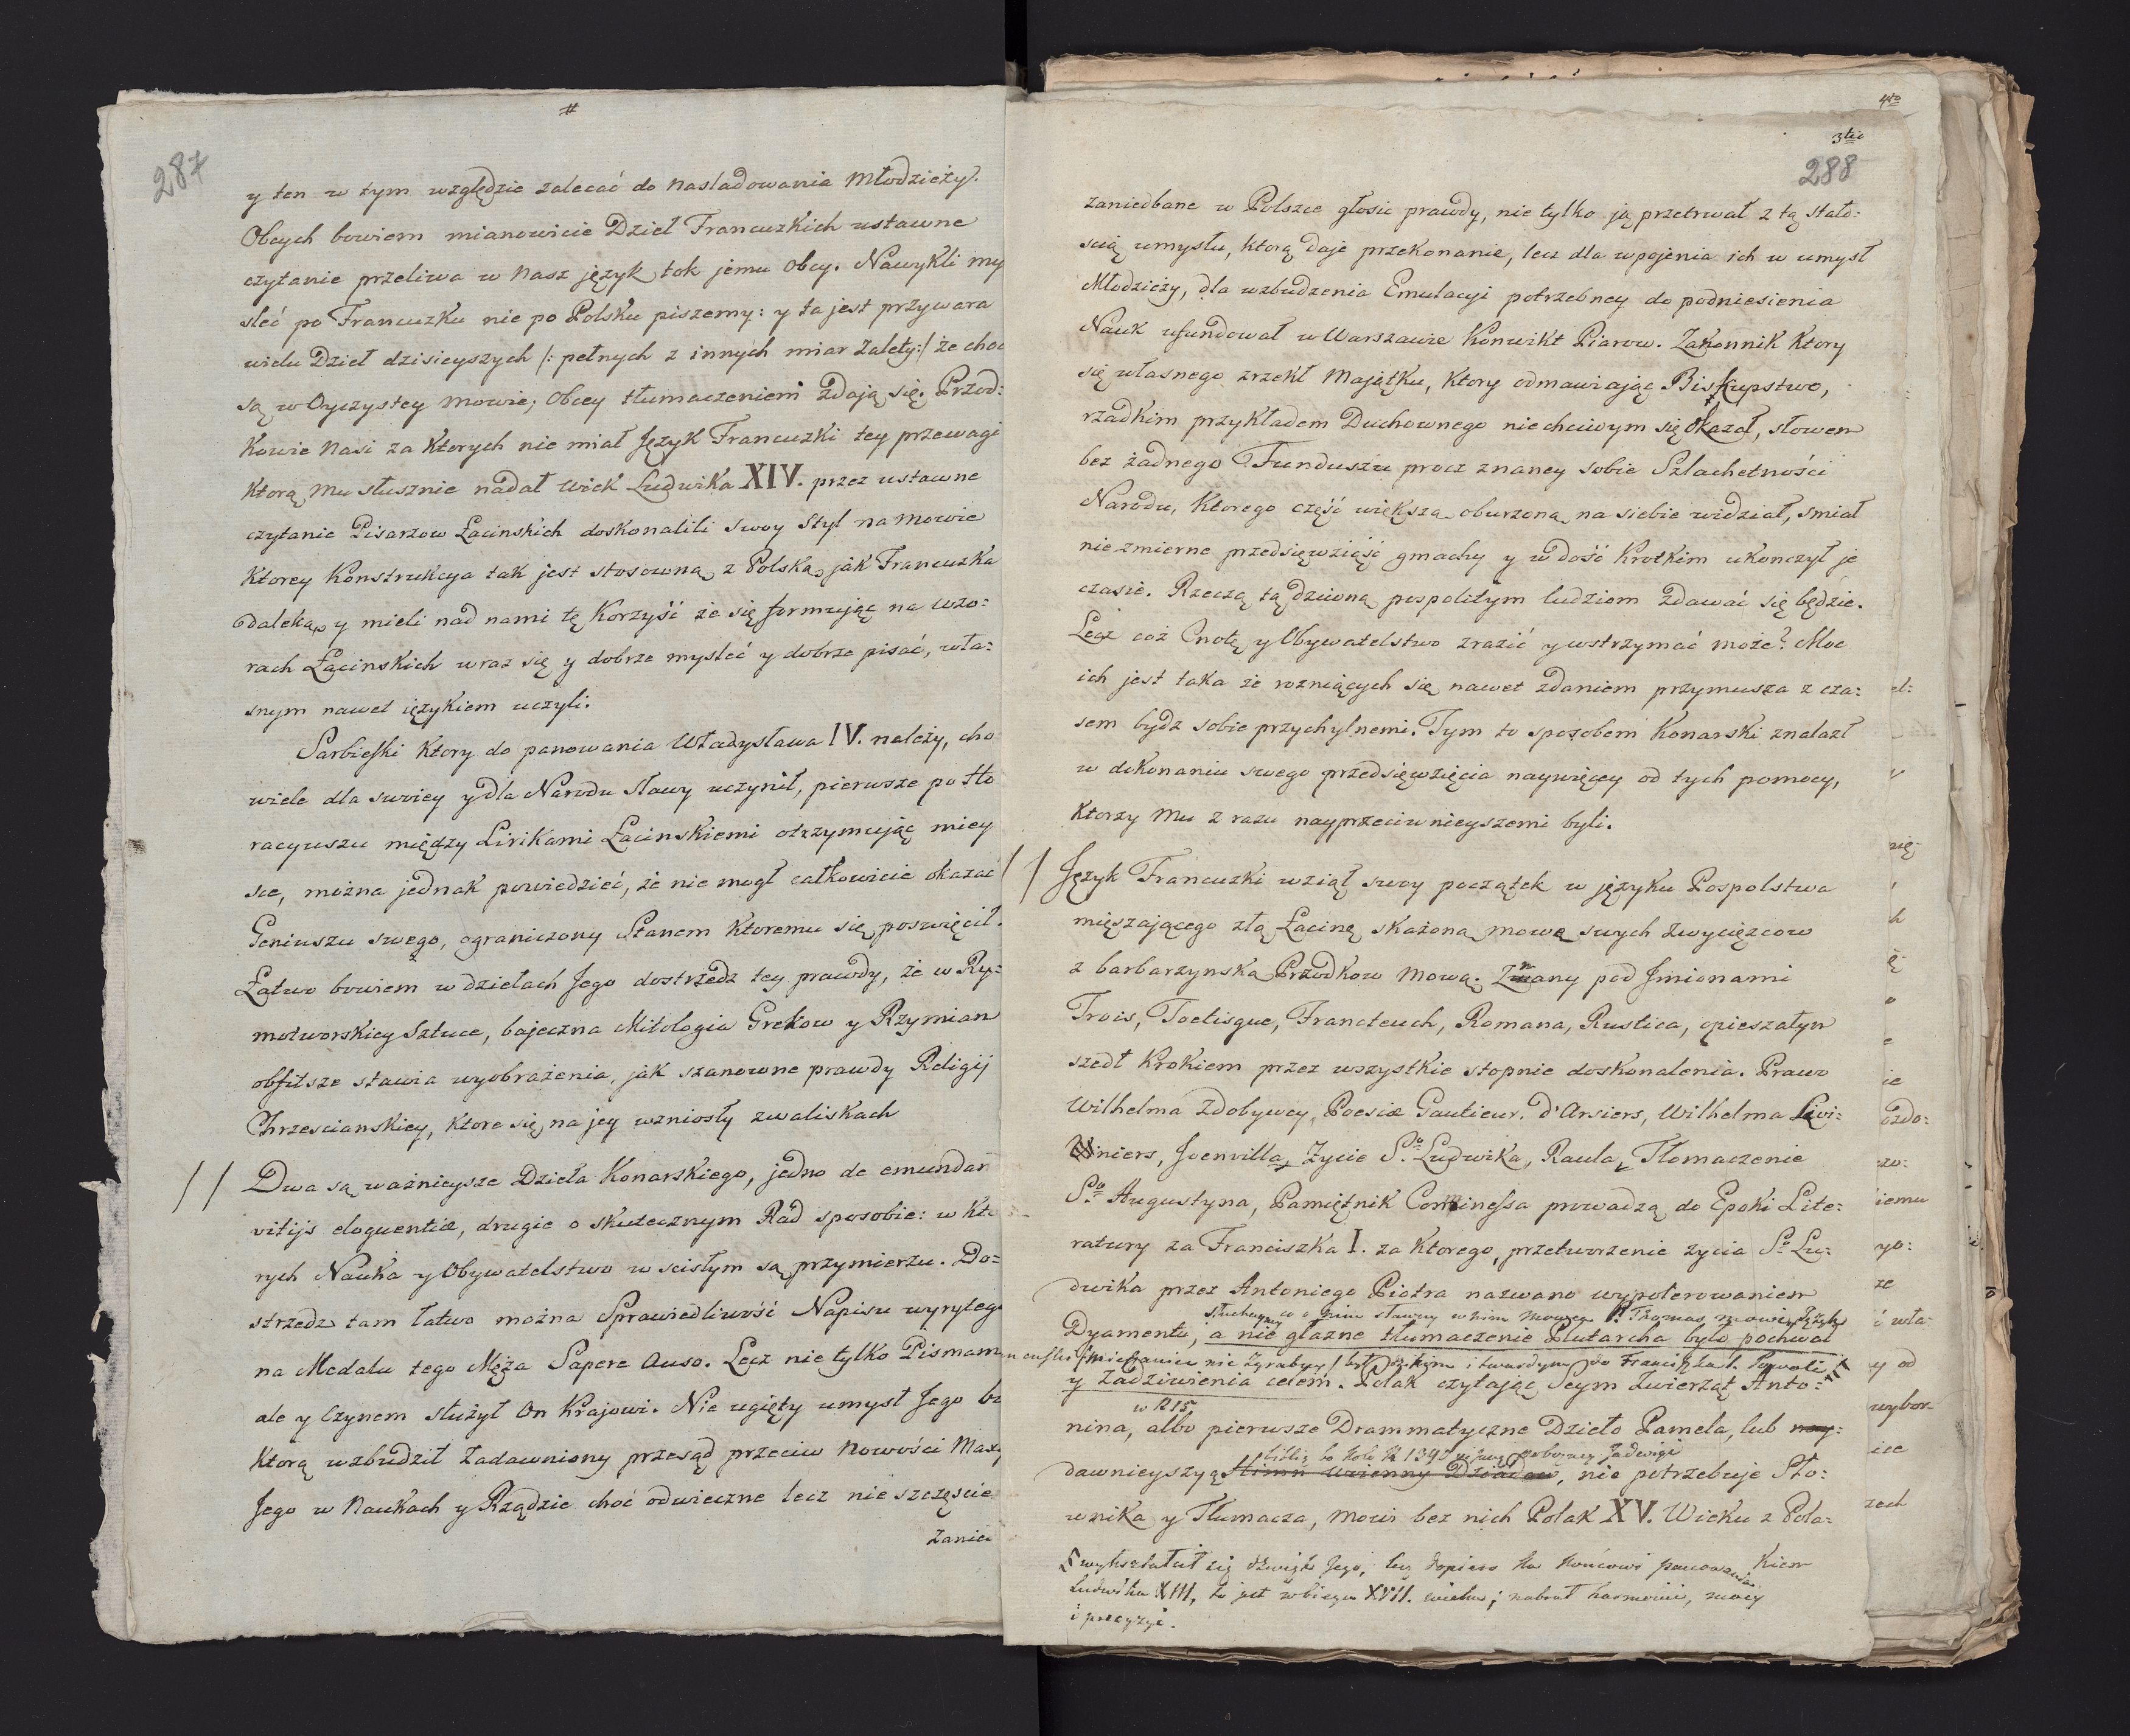 #
287
y ten w tym względzie zalecać do nasladowania Młodzieży.
Obcych bowiem mianowicie Dzieł Francuzkich ustawne
czytanie przeliwa w nasz język tok jemu obcy. Nawykli my
sleć po Francuzku nie po Polsku piszemy: y ta jest przywara
wielu Dzieł dzisieyszych /: pełnych z innych miar zalety:/ że choc
są w Oyczystey mowie, obcey tłumaczeniem zdają się. Przod:
kowie nasi za ktorych nie miał Język Francuzki tey przewagi
ktorą mu słusznie nadał wiek Ludwika XIV. przez ustawne
czytanie Pisarzow Łacinskich doskonalili swoy styl na mowie
ktorey Konstrukcya tak jest stosowną z Polską, jak Francuzka
daleką, y mieli nad nami tę korzyść że się formując na wzo:
rach Łacinskich wraz się y dobrze mysleć y dobrze pisać, wła:
snym nawet językiem uczyli.
Sarbieski ktory do panowania Władysława IV. należy, cho
wiele dla swoiey y dla Narodu sławy uczynił, pierwsze po Ho
racyuszu między Lirikami Łacinskiemi otrzymując miey
sce, można jednak powiedzieć, że nie mogł całkowicie okazać
Geniuszu swego, ograniczony Stanem ktoremu się poswięcił.
Łatwo bowiem w dziełach Jego dostrzedz tey prawdy, że w Ry:
motworskiey Sztuce, bajeczna Mitologia Grekow y Rzymian
obfitsze stawia wyobrażenia, jak szanowne prawdy Religij
Chrzescianskiey, ktore się na jey wzniosły zwaliskach
// Dwa są ważnieysze Dzieła Konarskiego, jedno de emundan
vitijs eloquentiæ, drugie o skutecznym Rad sposobie: w kto
rych Nauka y Obywatelstwo w scisłym są przymierzu. Do:
strzedz tam łatwo można Sprawiedliwość Napisu wyrytego
na Medalu tego Męża Sapere auso. Lecz nie tylko Pismam
ale y czynem służył on Krajowi. Nie ugięty umysł Jego bu
ktorą wzbudził zadawniony przesąd przeciw nowości Maxy
Jego w Naukach y Rządzie choć odwieczne lecz nie szczęscie
zanied
4to
3tio
288
zaniedbane w Polszce głosic prawdy, nie tylko ją przetrwał z tą stało:
scią umysłu, ktorą daje przekonanie, lecz dla wpojenia ich w umysł
Młodzieży, dla wzbudzenia Emulacyi potrzebney do podniesienia
Nauk ufundował w Warszawie Konwikt Piarow. Zakonnik ktory
się własnego zrzekł Majątku, ktory odmawiając Biskupstwo,
rzadkim przykładem Duchownego niechciwym się okazał, słowem
bez żadnego Funduszu procz znaney sobie Szlachetności
Narodu, ktorego część większa oburzoną na siebie widział, smiał
niezmierne przedsięwziąść gmachy y w dość krotkim ukonczył je
czasie. Rzeczą tą dziwną pospolitym ludziom zdawać się będzie.
Lecz coż Cnotę y Obywatelstwo zrazić y wstrzymać może? Moc
ich jest taka że rozniących się nawet zdaniem przymusza z cza:
sem bydz sobie przychylnemi. Tym to sposobem Konarski znalazł
w dokonaniu swego przedsięwzięcia naywięcey od tych pomocy,
ktorzy mu z razu nayprzeciwnieyszemi byli.
// Język Francuzki wziął swoy początek w języku Pospolstwa
mięszającego złą Łacinę skażoną mowę swych zwycięzcow
z barbarzynską Przodkow mową. Znany pod Jmionami
Trois, Toetisque, Francteuch, Romana, Rustica, opieszałym
szedł krokiem przez wszystkie stopnie doskonalenia. Prawo
Wilhelma Zdobywcy, Poesiæ Gautieur. d'Arsiers, Wilhelma Livi:
niers, Joenvilla, Zycie So Ludwika, Raula, Tłomaczenie
So Augustyna, Pamiętnik Cominessa prowadzą do Epoki Lite:
ratury za Franciszka I. za ktorego, przetworzenie zycia So Lu:
dwika przez Antoniego Piotra nazwano wypolerowaniem
słuchaymy co o nim sławny w nim mowca P. Thomas mowi, Język
Dyamentu, a nie głazne tłumaczenie Plutarcha było pochwał
do Franciszka I. Powoli
y zadziwienia celem. Polak czytając Seym zwierząt Anto:
w R 15
nina, albo pierwsze Drammatyczne Dzieło Pamela, lub nay:
dawnieyszyą Hymn woienny Dziadow, nie potrzebuje Sło:
wnika y Tłumacza, mowi bez nich Polak XV. Wieku z Pola:
kiem
wykształcił się dzwięk Jego, lecz dopiero ku koncowi panowania
Ludwika XIII, to jest w biegu XVII. wieku; nabrał harmonii, mocy
i precyzyi.